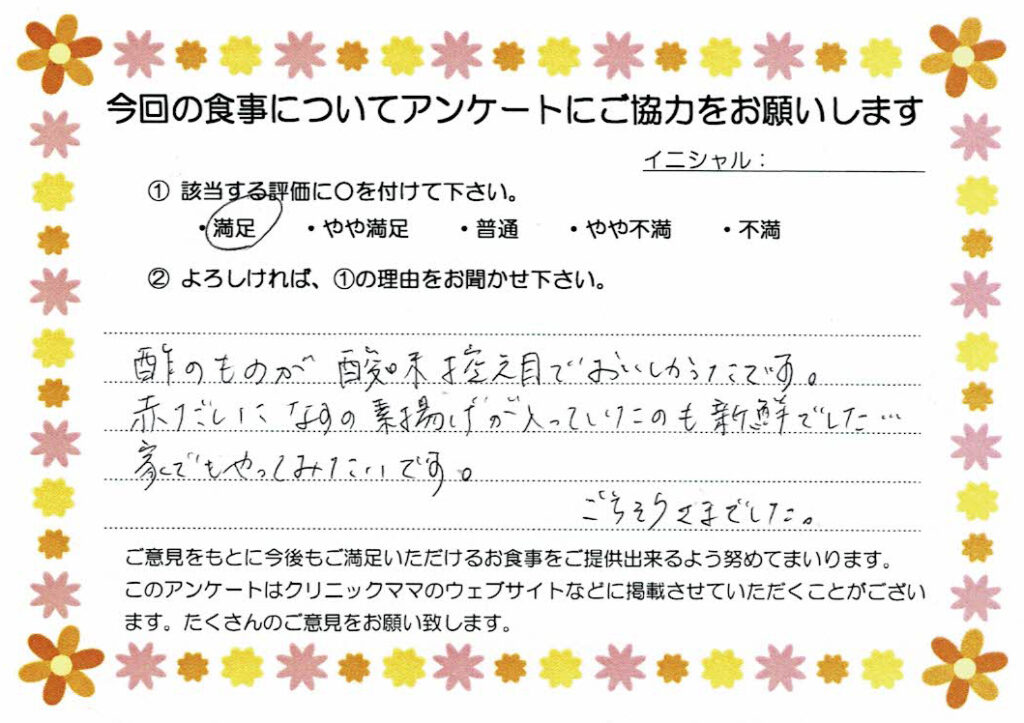 今回の食事についてアンケートにご協力をお願いします
イニシャル：
① 該当する評価に〇を付けて下さい。
・満足 ・やや満足 ・普通 ・やや不満 ・不満
② よろしければ、①の理由をお聞かせ下さい。
酢のものが 酸味控え目でおいしかったです。
赤だしに なすの素揚げが入っていたのも新鮮でした…
家でもやってみたいです。
ごちそうさまでした。
ご意見をもとに今後もご満足いただけるお食事をご提供出来るよう努めてまいります。
このアンケートはクリニックママのウェブサイトなどに掲載させていただくことがござい
ます。たくさんのご意見をお願い致します。